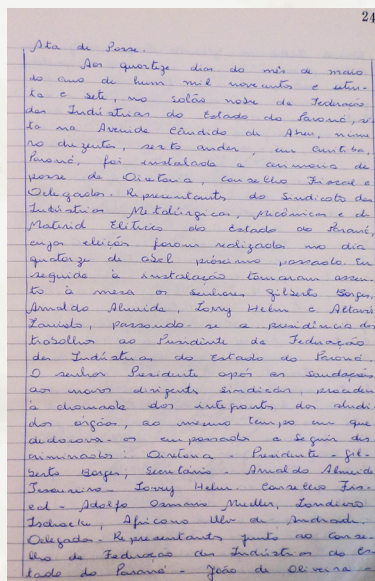 24
Ata de Posse.
Aos quatorze dias do mês de maio
do ano de hum mil novecentos e seten-
ta e sete, no salão nobre da Federação
das Indústrias do Estado do Paraná, si-
ta na Avenida Cândido de Abreu, núme-
ro duzentos, sexto andar, em Curitiba,
Paraná, foi instalada a cerimonia de
posse da Diretoria, Conselho Fiscal e
Delegados-Representantes do Sindicato das
Indústrias Metalúrgicas, Mecânicas e de
Material Elétrico do Estado do Paraná,
cujas eleições foram realizadas no dia
quatorze de abril próximo passado. Em
seguida à instalação tomaram assen-
to à mesa os senhores Gilberto Borges,
Arnaldo Almeida, Lorry Helm e Altavir
passando-se a presidência dos
trabalhos ao Presidente da Federação
das Indústrias do Estado do Paraná.
O senhor Presidente após as saudações
aos novos dirigentes sindicais, procedeu
à chamada dos integrantes dos aludi-
dos órgãos, ao mesmo tempo em que
declarava-os empossados a seguir dis-
criminados: Diretoria - Presidente - Gil-
berto Borges, Secretário - Arnaldo Almeida
Tesoureiro - Lorry Helm. Conselho Fis-
cal - Adolfo Mueller,
Africano de Andrade.
Delegados-Representantes junto ao Conse-
lho da Federação das Indústrias do Es-
tado do Paraná - João de Oliveira -